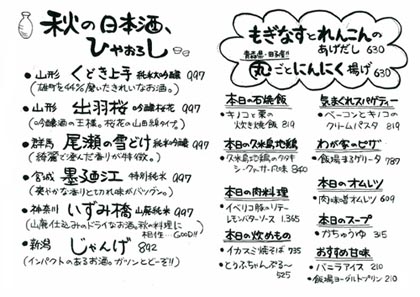 秋の日本酒、
ひやおろし
・山形 くどき上手 純米大吟醸 997
(雄町を44%磨いたきれいなお酒。)
・山形 出羽桜 吟醸桜花 997
(吟醸酒の王様。桜花の山田錦タイプ。)
・群馬 尾瀬の雪どけ 純米吟醸 997
(綺麗で澄んだ香りが特徴。)
・宮城 墨廼江 特別純米 997
(爽やかな香りと切れ味がバツグン。)
・神奈川 いずみ橋 山廃純米 997
(山廃仕込みのドライなお酒。秋の料理に
相性…GOOD!!)
・新潟 じゃんげ 892
(インパクトのあるお酒。ガツンとどーぞ!)
もぎなすとれんこんの
あげだし 630
青森県・田子産!!
丸ごとにんにく揚げ 630
本日の石焼飯
・キノコと栗の
炊き焼き飯 819
本日の久米島地鶏
・久米島地鶏のタタキ
シークヮサー風味 840
本日の肉料理
・イベリコ豚のソテー
レモンバターソース 1.365
本日の炒めもの
・イカスミ焼そば 735
・とうふちゃんぷる〜
525
気まぐれスパゲティー
・ベーコンとキノコの
クリームパスタ 819
わが家のピザ
・飯場まるゲリータ 787
本日のオムレツ
・肉味噌オムレツ 609
本日のスープ
・かちゅうゆ 315
おすすめ甘味
・バニラアイス 210
・飯場ヨーグルトプリン 210